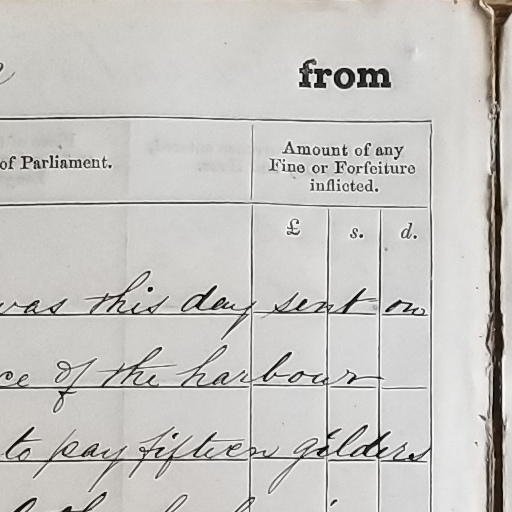 from
of Parliament.
Amount of any
Fine or Forfeiture
inflicted.
£ s. d.
was this day sent on
ce of the harbour
to pay fifteen gilders